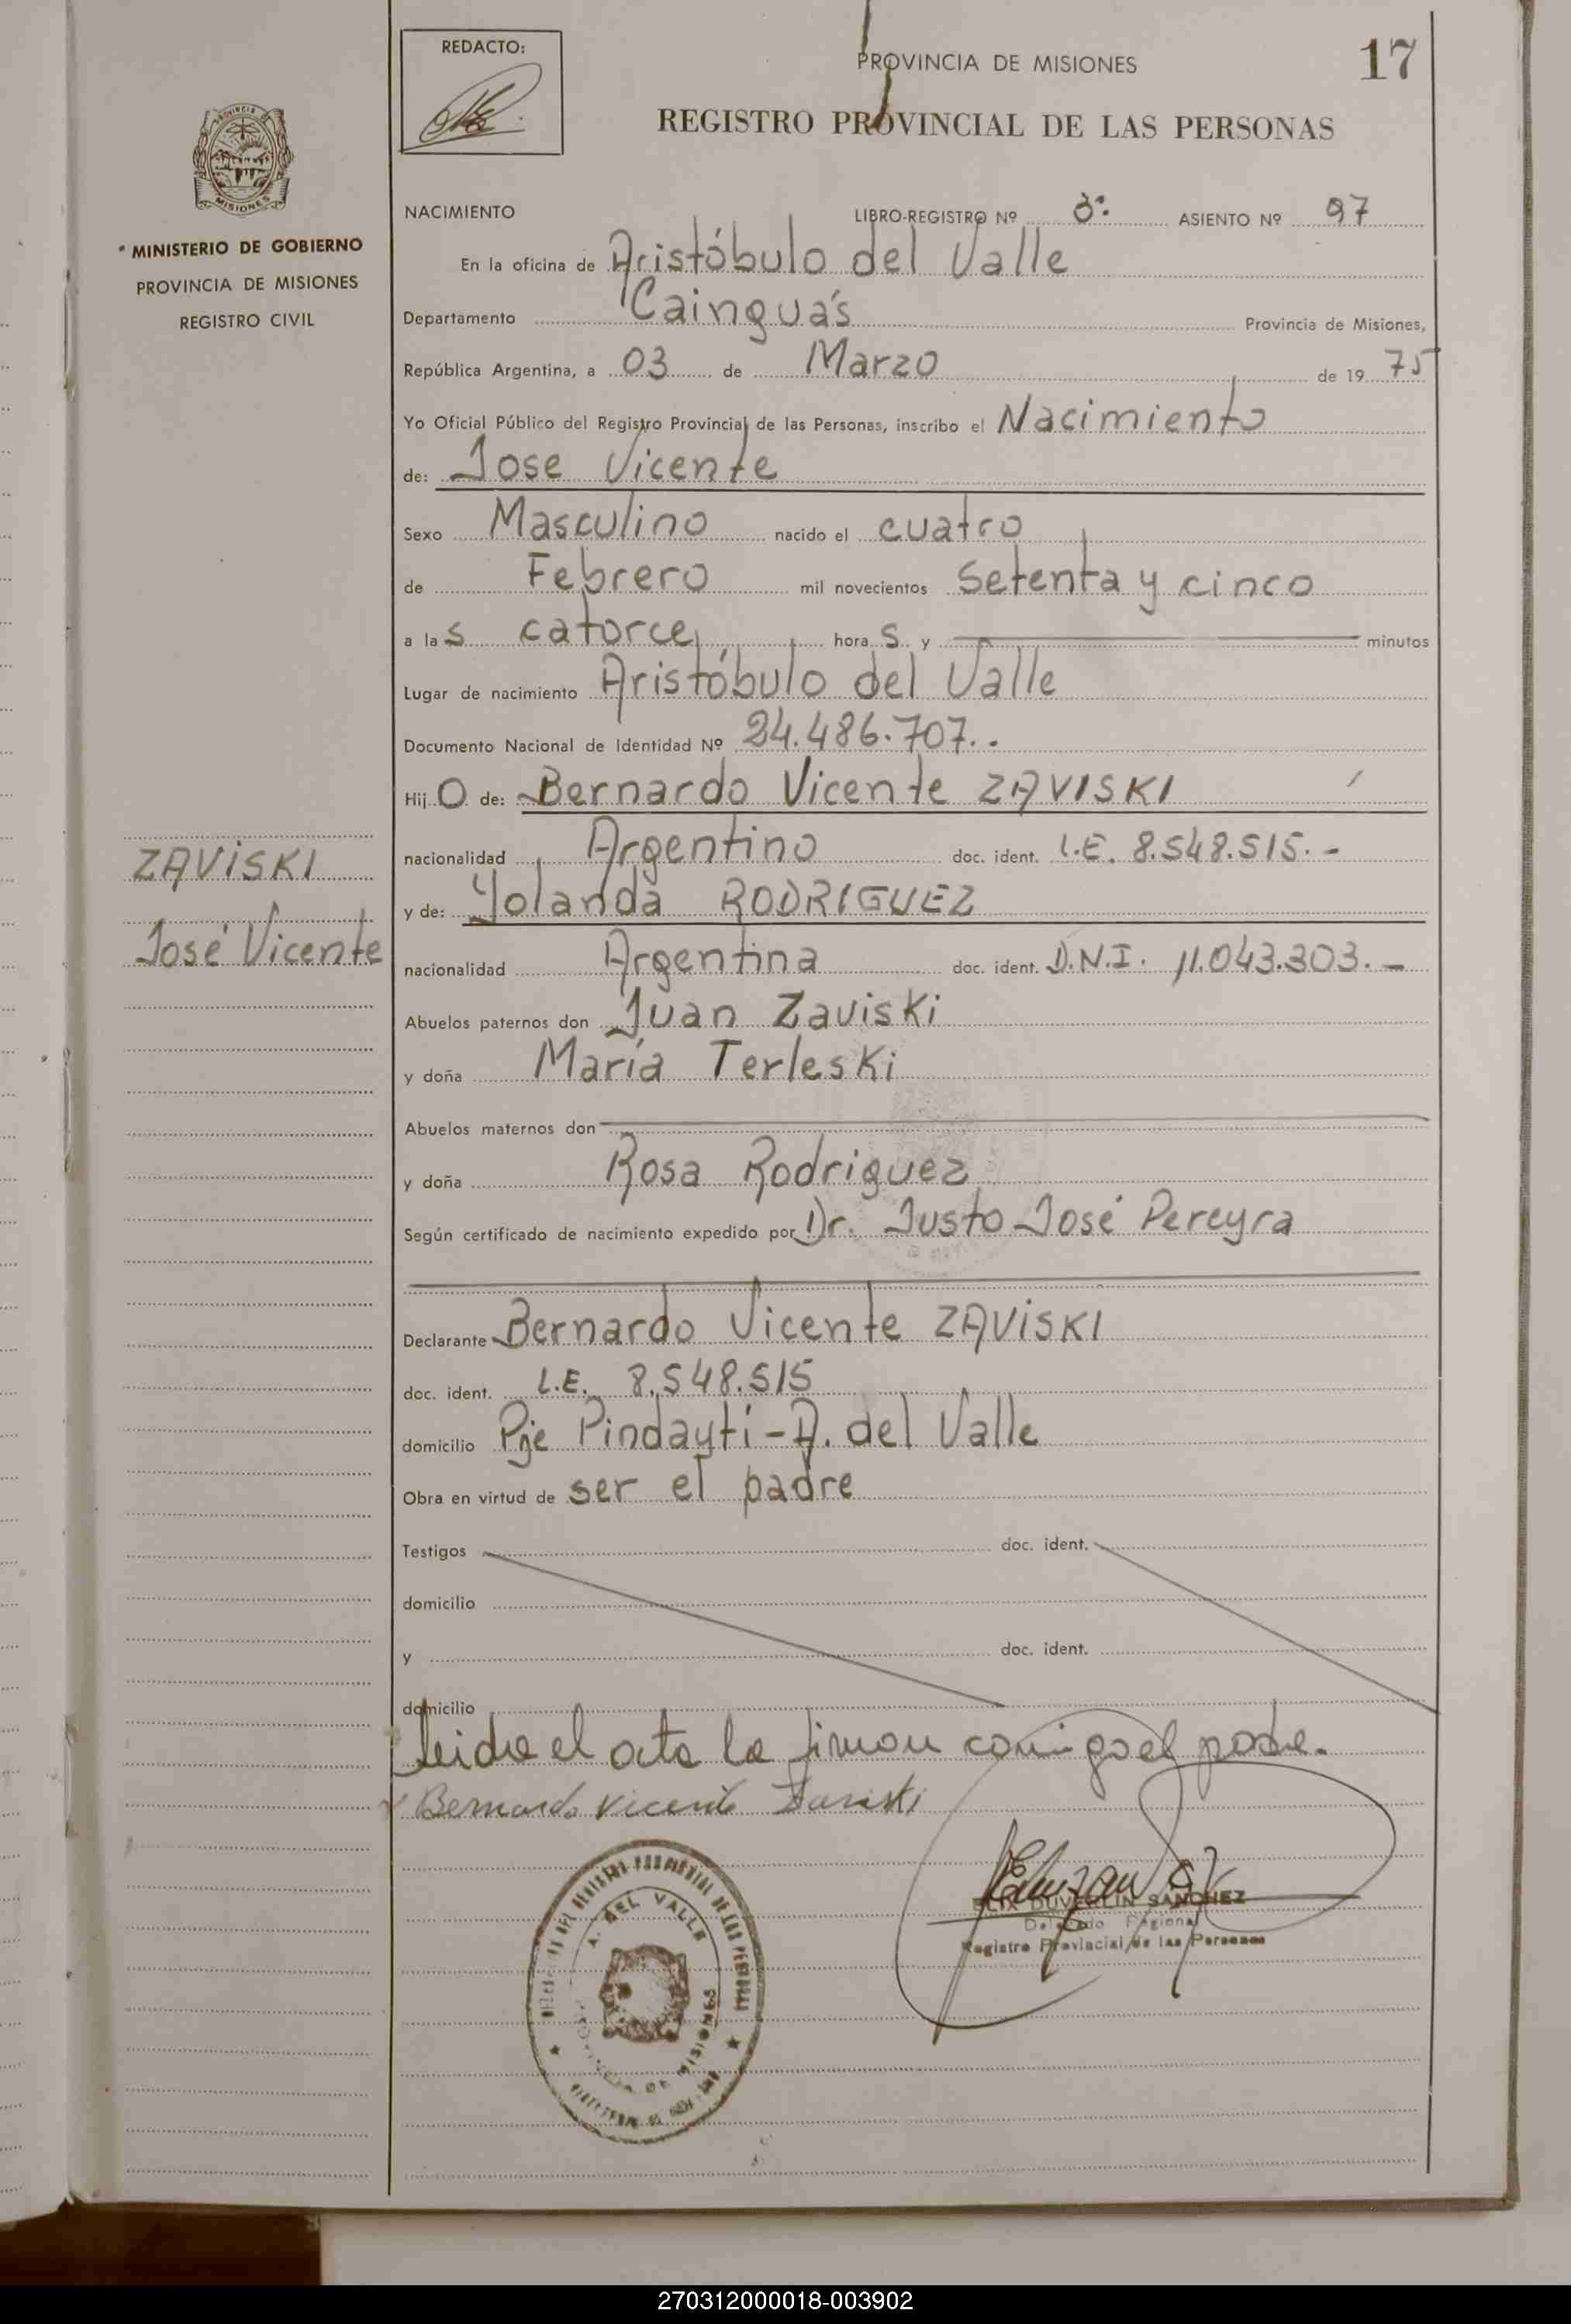 REDACTO:
PROVINCIA DE MISIONES
17
REGISTRO PROVINCIAL DE LAS PERSONAS
PROVINCIA DE
MISIONES
MINISTERIO DE GOBIERNO
PROVINCIA DE MISIONES
REGISTRO CIVIL
NACIMIENTO LIBRO-REGISTRO Nº 3º ASIENTO Nº 97
En la oficina de Aristóbulo del Valle
Departamento Cainguás Provincia de Misiones,
República Argentina, a 03 de Marzo de 19 75
Yo Oficial Público del Registro Provincial de las Personas, inscribo el Nacimiento
de: Jose Vicente
Sexo Masculino nacido el cuatro
de Febrero mil novecientos setenta y cinco
a las catorce horas y minutos
Lugar de nacimiento Aristóbulo del Valle
Documento Nacional de Identidad Nº 24.486.707..
Hijo de: Bernardo Vicente ZAVISKI
nacionalidad Argentino doc. ident. L.E. 8.548.515.-
y de: Yolanda RODRIGUEZ
nacionalidad Argentina doc. ident. D.N.I. 11.043.303.-
ZAVISKI
José Vicente
Abuelos paternos don Juan Zaviski
y doña María Terleski
Abuelos maternos don
y doña Rosa Rodriguez
Según certificado de nacimiento expedido por Dr. Justo José Pereyra
Declarante Bernardo Vicente ZAVISKI
doc. ident. L.E. 8.548.515
domicilio Pje Pindaytí-A. del Valle
Obra en virtud de ser el padre
Testigos doc. ident.
domicilio
y doc. ident.
domicilio
Leida el acta la firman conmigo el padre.
Bernardo Vicente Zaviski
ELIX DUVERLIN SANCHEZ
Delegado Regional
Registro Provincial de las Personas
A. DEL VALLE
MISIONES
270312000018-003902